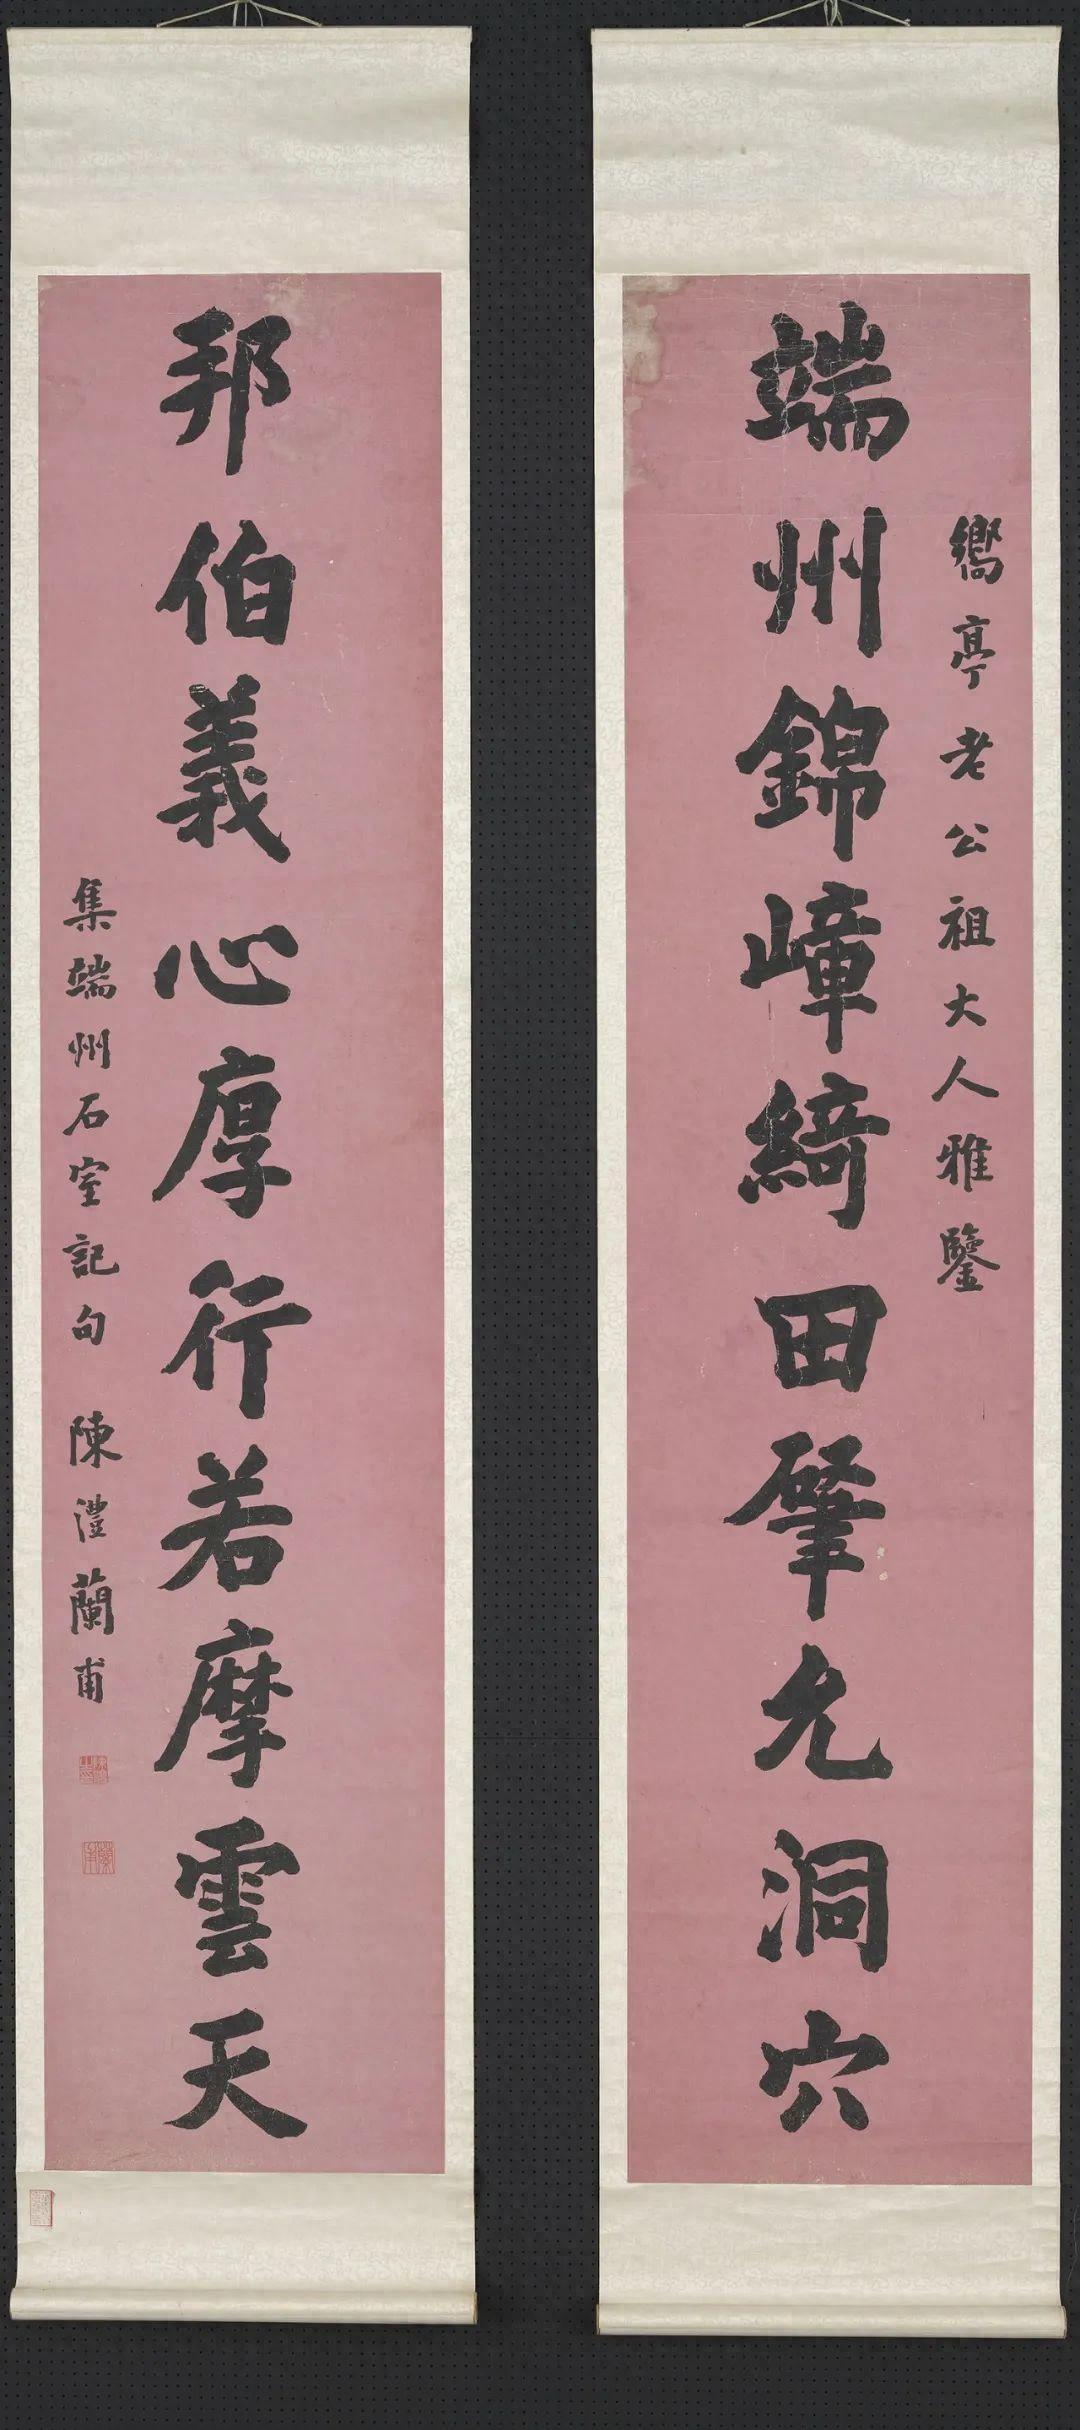 嚮亭老公祖大人雅鑒
端州錦嶂綺田肇允洞穴
邦伯義心厚行若摩雲天
集端州石室記句 陳澧蘭甫